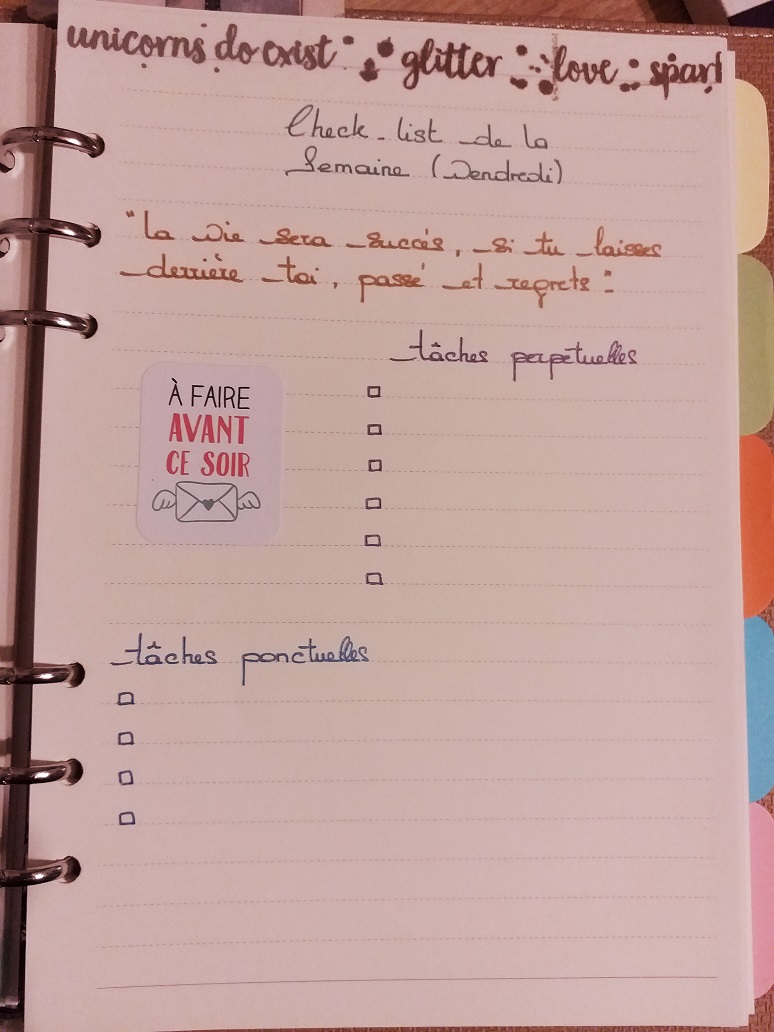 unicorns do exist glitter love spark
Check-list de la
Semaine (Vendredi)
"La vie sera succès, si tu laisses
derrière toi, passé et regrets."
tâches perpétuelles
À FAIRE
AVANT
CE SOIR
tâches ponctuelles